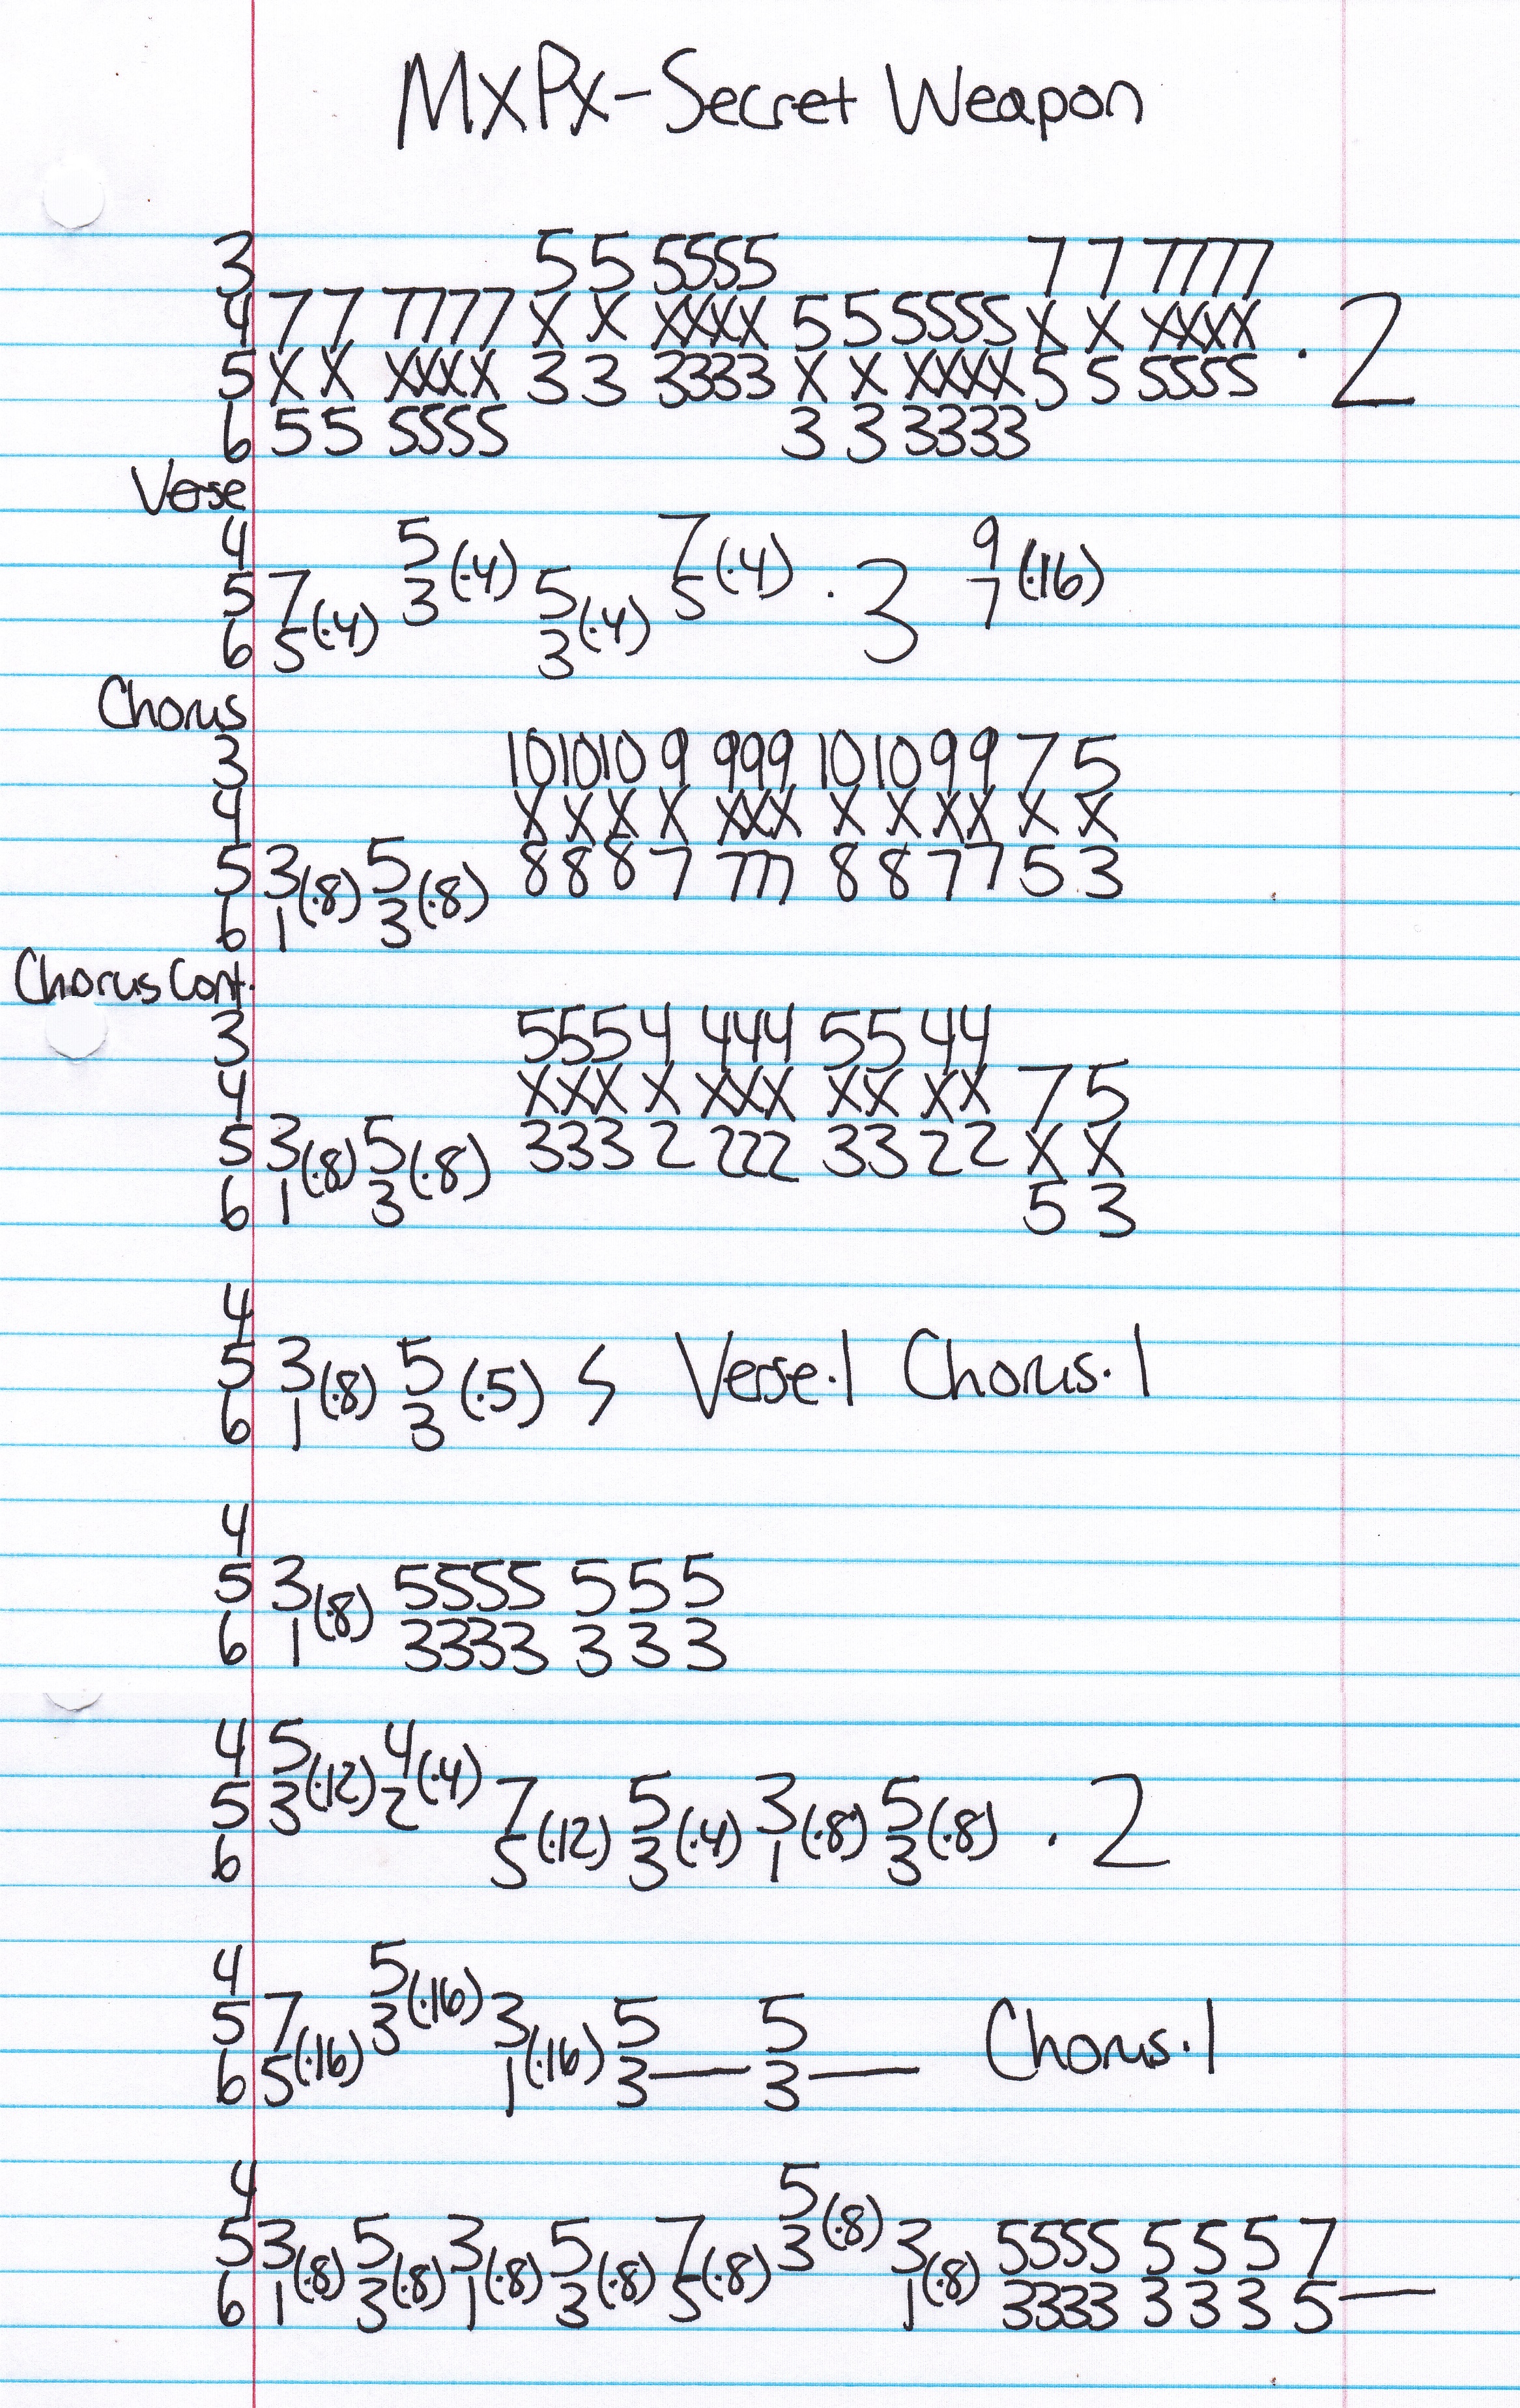 MxPx-Secret Weapon
3 5 5 5555 7 7 7777
4 7 7 7777 X X XXXX 5 5 5555 X X XXXX · 2
5 X X XXXX 3 3 3333 X X XXXX 5 5 5555
6 5 5 5555 3 3 3333
Verse
4 5 (·4) 7 (·4) 9 (·16)
5 7 (·4) 3 5 (·4) 5 · 3 7
6 5 3
Chorus
3 10 10 10 9 999 10 10 9 9 7 5
4 X X X X XXX X X XX X X
5 3 (·8) 5 (·8) 8 8 8 7 777 8 8 7 7 5 3
6 1 3
Chorus Cont.
3 555 4 444 55 44
4 XXX X XXX XX XX 7 5
5 3 (·8) 5 (·8) 333 2 222 33 22 X X
6 1 3 5 3
4
5 3 (·8) 5 (·5) Verse·1 Chorus·1
6 1 3
4
5 3 (·8) 5555 5 5 5
6 1 3333 3 3 3
4 5 (·12) 4 (·4)
5 3 2 7 (·12) 5 (·4) 3 (·8) 5 (·8) · 2
6 5 3 1 3
4 5 (·16)
5 7 (·16) 3 3 (·16) 5 5 Chorus·1
6 5 1 3— 3—
4 5 (·8)
5 3 (·8) 5 (·8) 3 (·8) 5 (·8) 7 (·8) 3 3 (·8) 5555 5 5 5 7
6 1 3 1 3 5 1 3333 3 3 3 5—